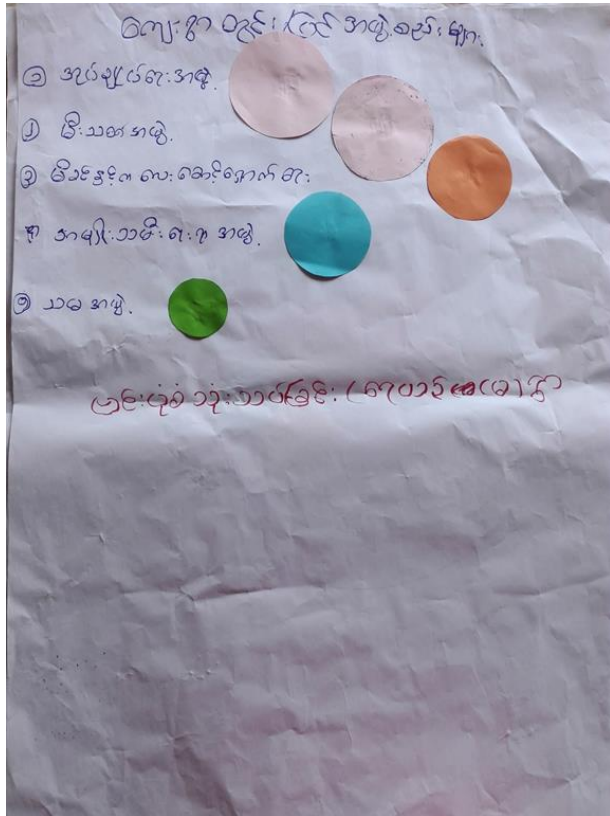 ကျေးရွာ တွင်း/ပြင် အဖွဲ့အစည်းများ
① အုပ်ချုပ်ရေးအဖွဲ့
② မီးသတ်အဖွဲ့
③ မိခင်နှင့်ကလေးစောင့်ရှောက်ရေး
၄ အမျိုးသမီးရေးရာအဖွဲ့
⑤ သမအဖွဲ့
ဗင်းပုံစံသုံးသပ်ခြင်း ( ) ရွာ